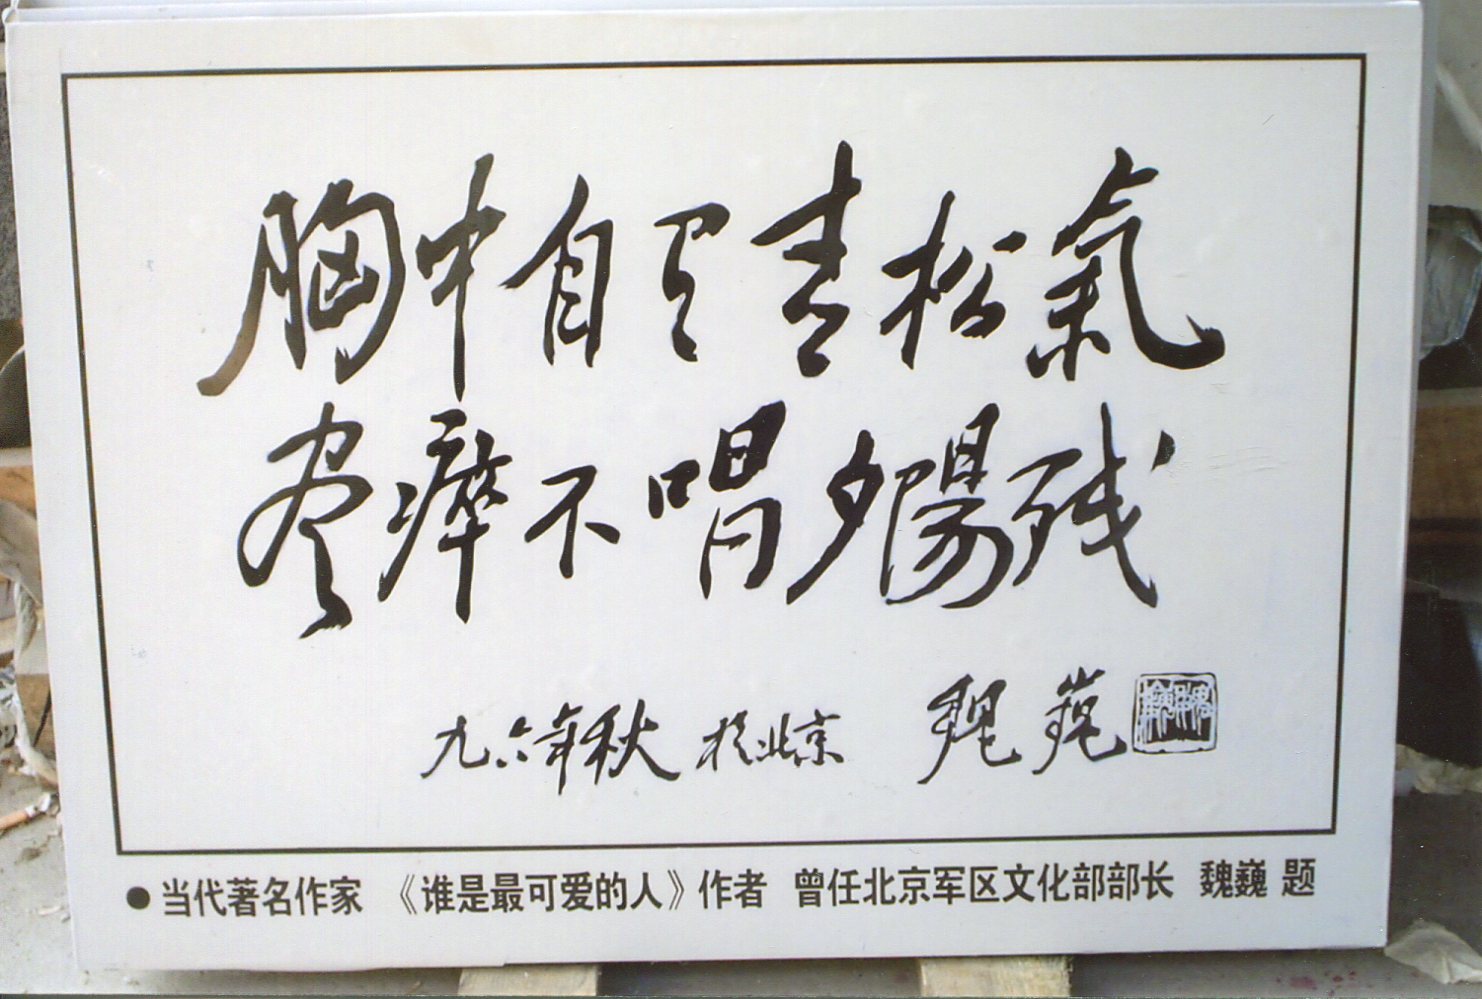 胸中自青松氣
尽瘁不唱夕陽残
九六年秋 於北京 魏巍
●当代著名作家 《谁是最可爱的人》作者 曾任北京军区文化部部长 魏巍 题